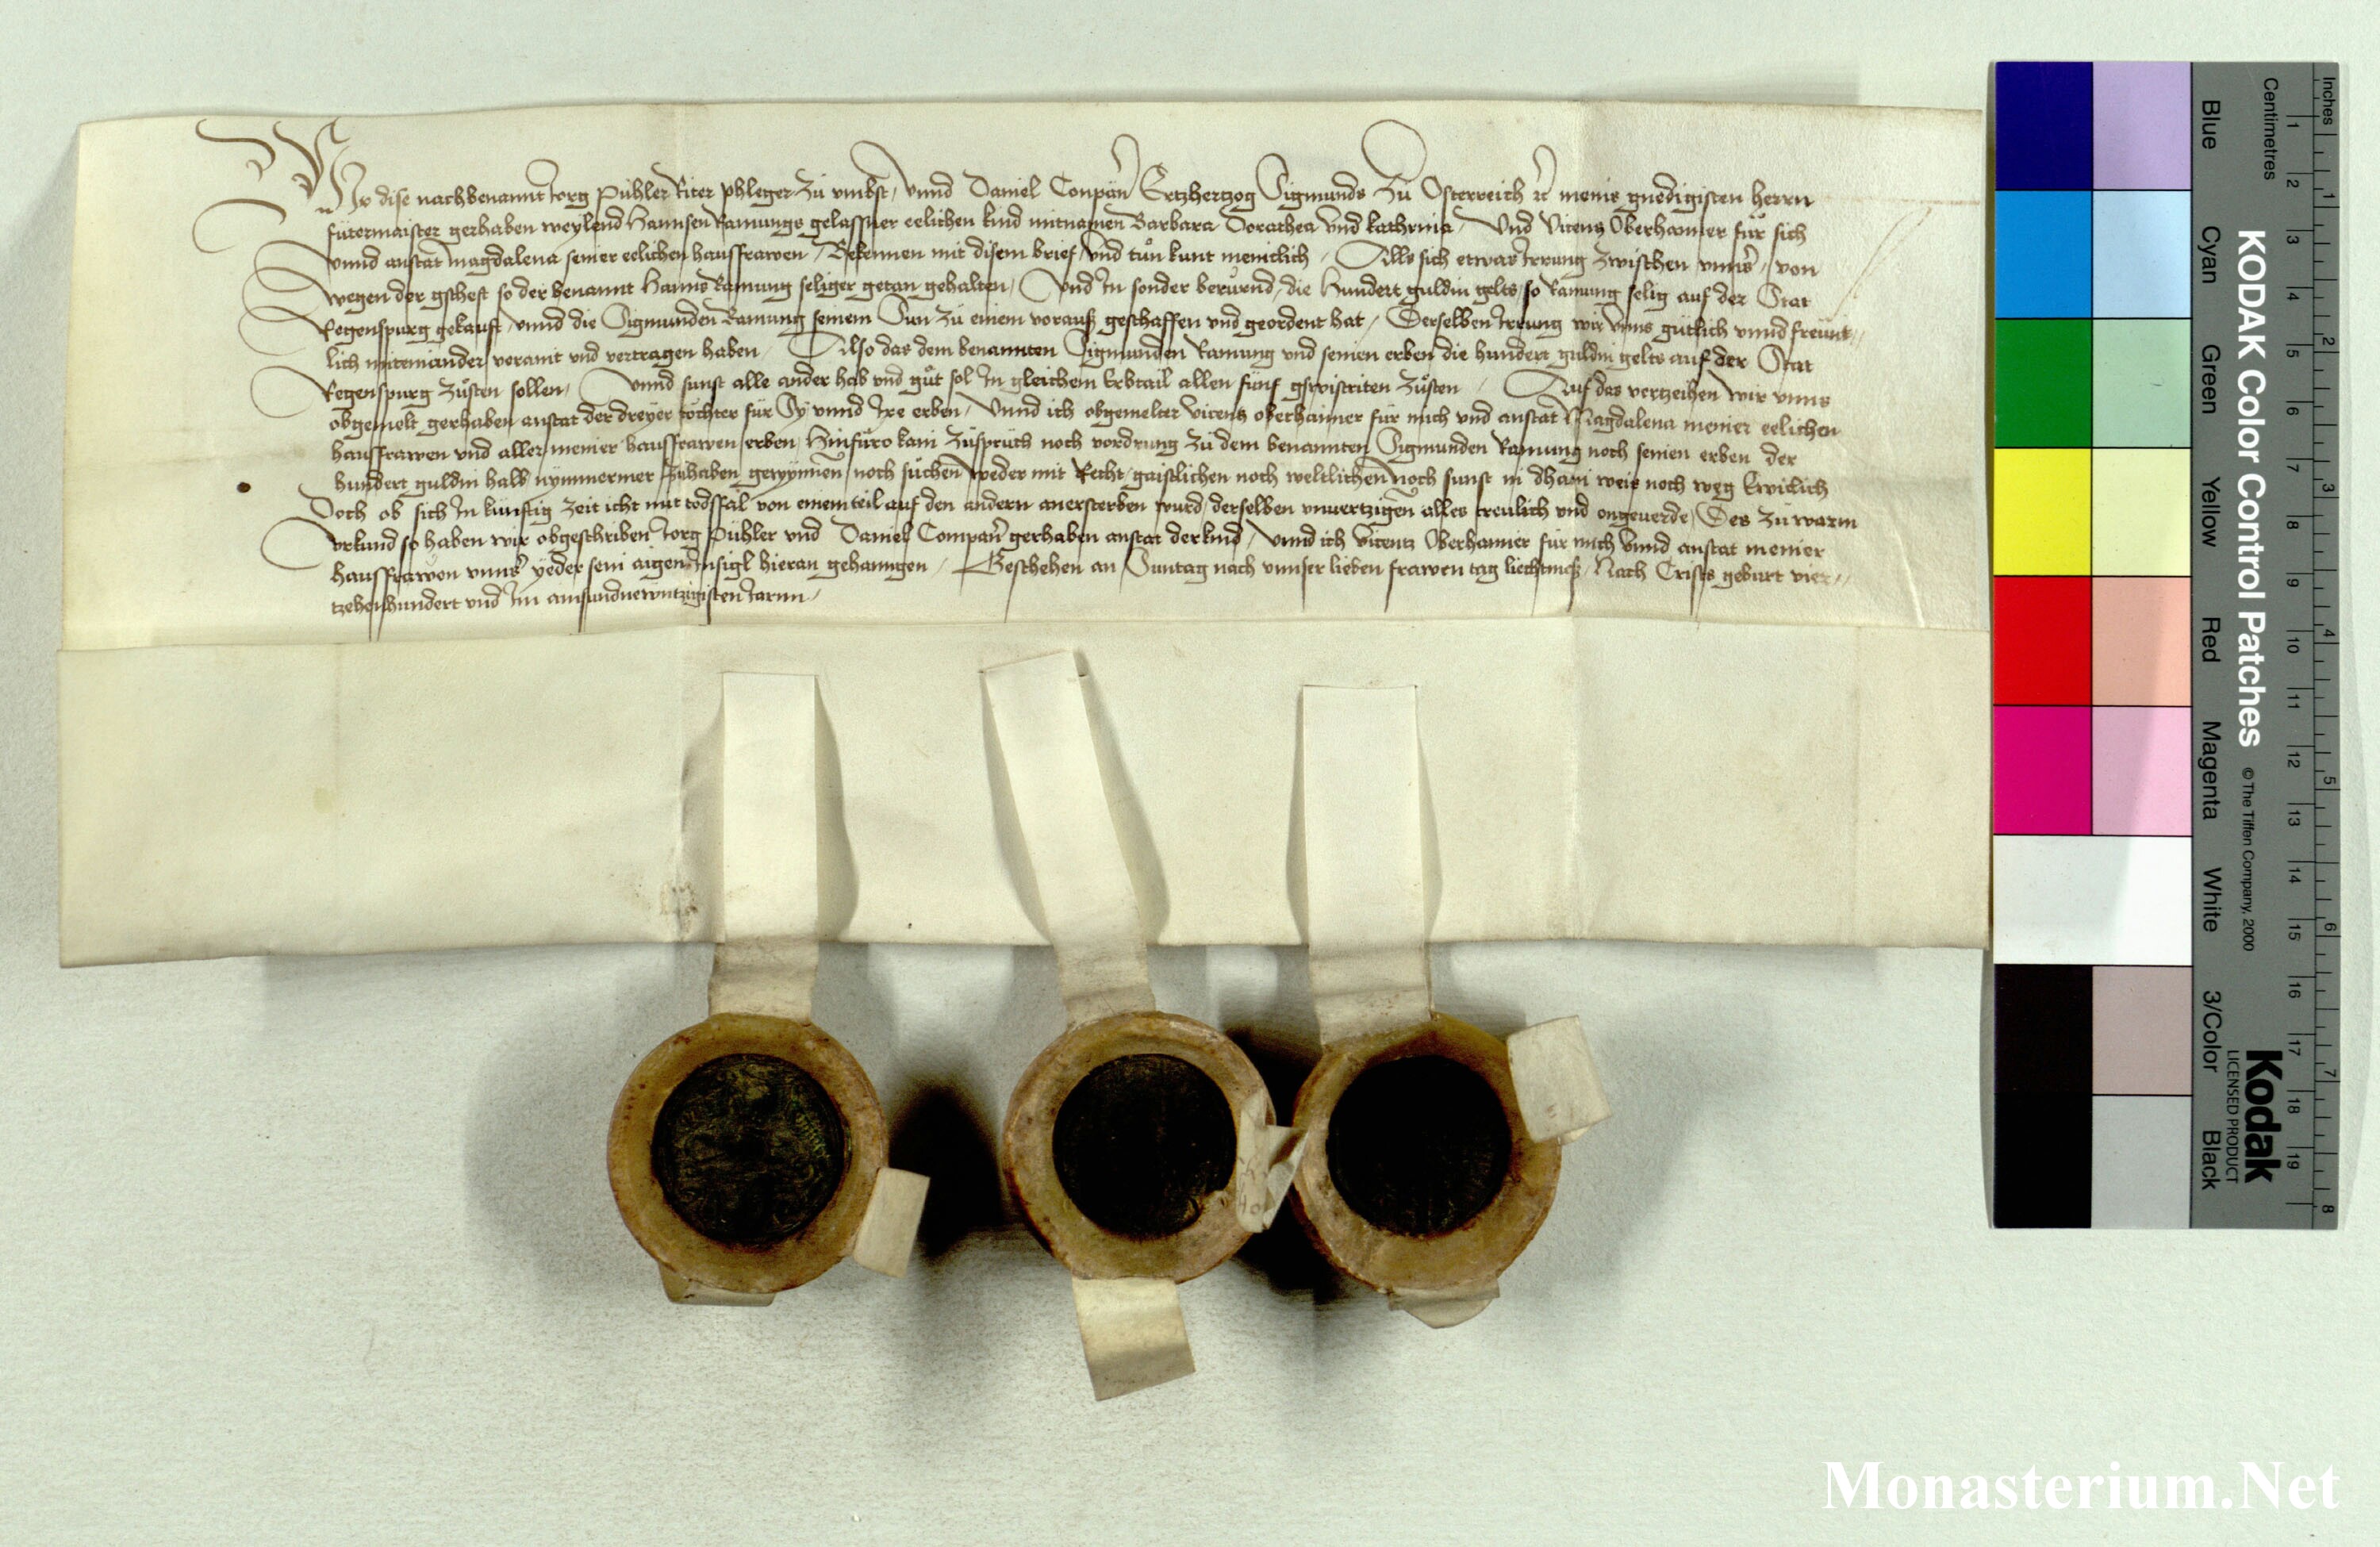 Wir dise nachbenannt Jorg Pühler Riter phleger Zu vmbst, vnnd Daniel Conpan Ertzhertzog Sigmunds Zu Osterreich ꝛc meins gnedigisten herrn
fütermaister gerhaben weylend Hannsen Ramungs gelassner eelichen kind mitnamen Barbara Dorathea vnd kathrina, Vnd Vicentz Oberhaimer für sich
vnnd anstat magdalena seiner eelichen haussfrawen, Bekennen mit disem brief vnd tůn kunt meniclich, Alls sich etwas Irrung Zwischen vnns, von
wegen der gscheft so der benannt Hanns Ramung seliger getan gehalten, Vnd In sonder berürend, die Hundert guldin gelts, so Ramung selig auf der Stat
Regenspurg gekauft, vnnd die Sigmunden Ramung seinem Sun zu einem vorauß geschaffen vnd geordent hat, Derselben Irrung wir vnns gütlich vnnd freünt,,
lich miteinander veraint vnd vertragen haben, Also das dem benannten Sigmunden Ramung vnd seinen erben die hundert guldin gelts auf der Stat
Regenspurg Zůsten sollen, Vnnd sunst alle ander hab vnd gůt sol In gleichem Erbtail allen fünf gswistriten Zůsten, Auf das vertzeihen wir vnns
obgemelt gerhaben anstat der dreyer töchter für Sy vnnd Ire erben, Vnnd ich obgemelter Vicentz oberhaimer für mich vnd anstat Magdalena meiner eelichen
haussfrawen vnd aller meiner haussfrawen erben, Hinfüro kain Zůspruch noch vordrung Zů dem benannten Sigmunden Ramung noch seinen erben der
hundert guldin halb nymmermer Zuhaben gewynnen noch süchen weder mit Recht, gaistlichen noch weltlichen noch sunst in dhain weis noch weg Ewiclich
Doch ob sich In künftig Zeit icht mit todsfal von einem teil auf den andern anersterben wurd, derselben vnuertzigen alles treulich vnd ongeuerde, Des Zu warm
vrkund so haben wir obgeschriben Jorg Pühler vnd Daniel Compan gerhaben anstat der kind, vnnd ich Vicentz Oberhaimer für mich vnnd anstat meiner
haussfrawen vnns yeder sein aigen Insigl hieran gehanngen, Geschehen an Suntag nach vnnser lieben frawen tag liechtmeß, Nach Crists geburt vier,,
tzehenhundert vnd Im ainsundnewntzigisten Jarnn,
KODAK Color Control Patches
© The Tiffen Company, 2000
Kodak
LICENSED PRODUCT
Inches
Centimetres
1 2 3 4 5 6 7 8
1 2 3 4 5 6 7 8 9 10 11 12 13 14 15 16 17 18 19
Blue Cyan Green Yellow Red Magenta White 3/Color Black
Monasterium.Net